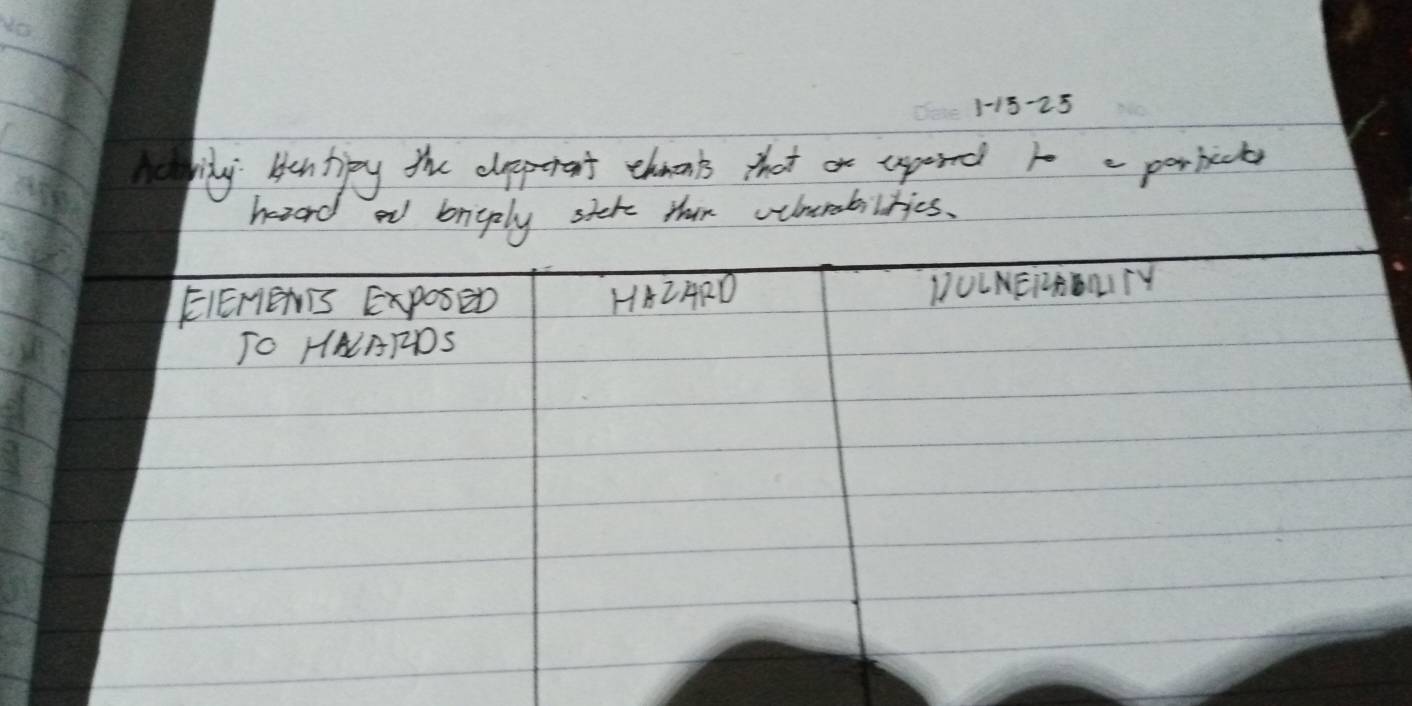 No
Date 1-15-25 No.
Activity: Identify the different elements that are exposed to a particular
hazard and briefly state their vulnerabilities.
ElEMENTS EXPOSED HAZARD VULNERABILITY
TO HAZARDS